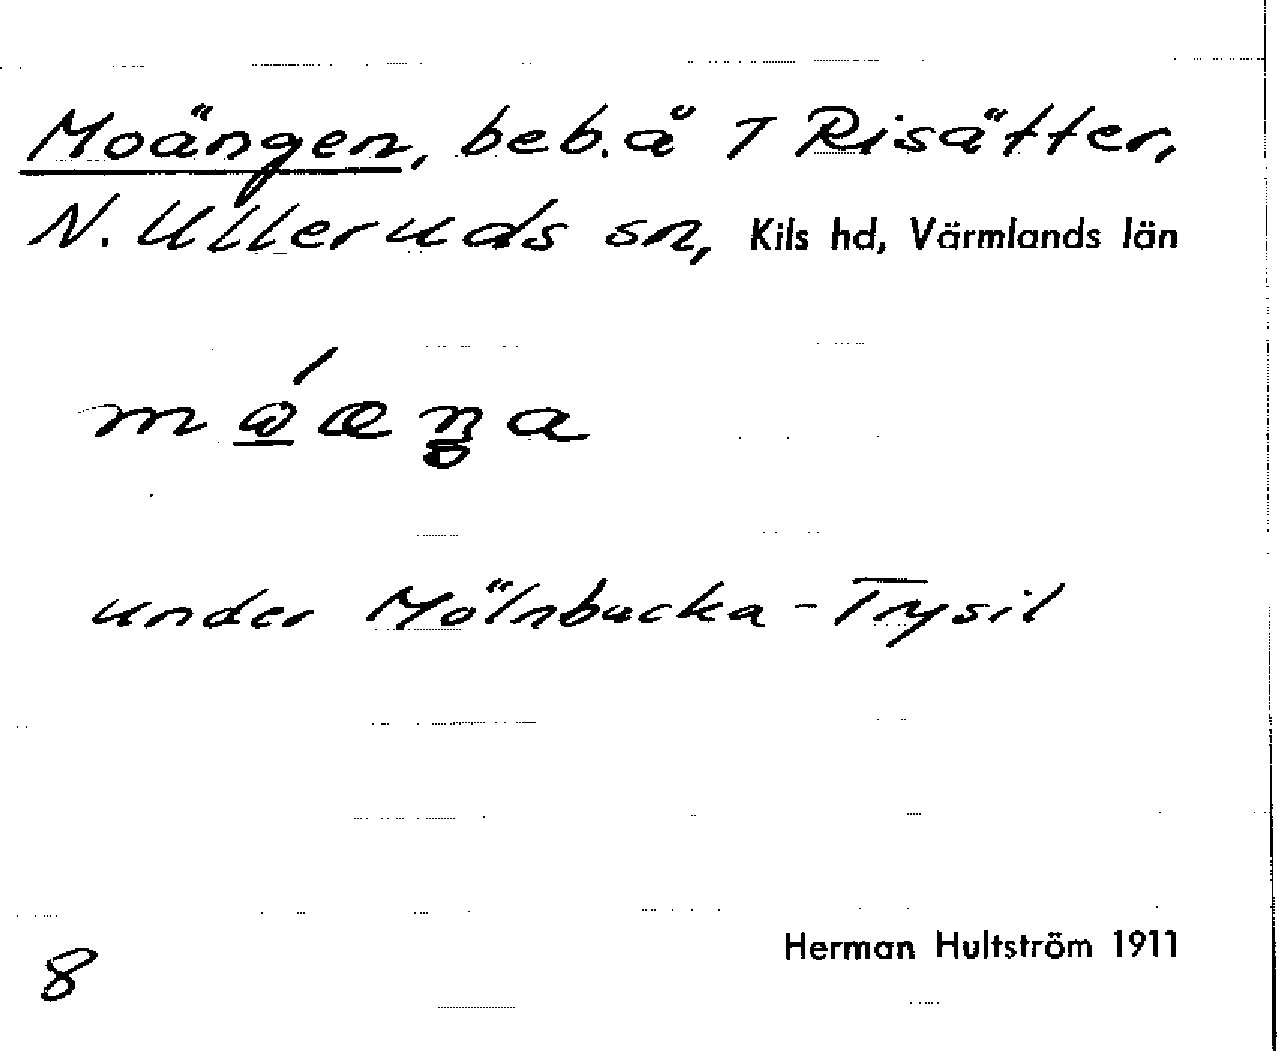 Moängen, beb. å 7 Risätter,
N. Ulleruds sn, Kils hd, Värmlands län
under Mölnbacka - Trysil
Herman Hultström 1911
8